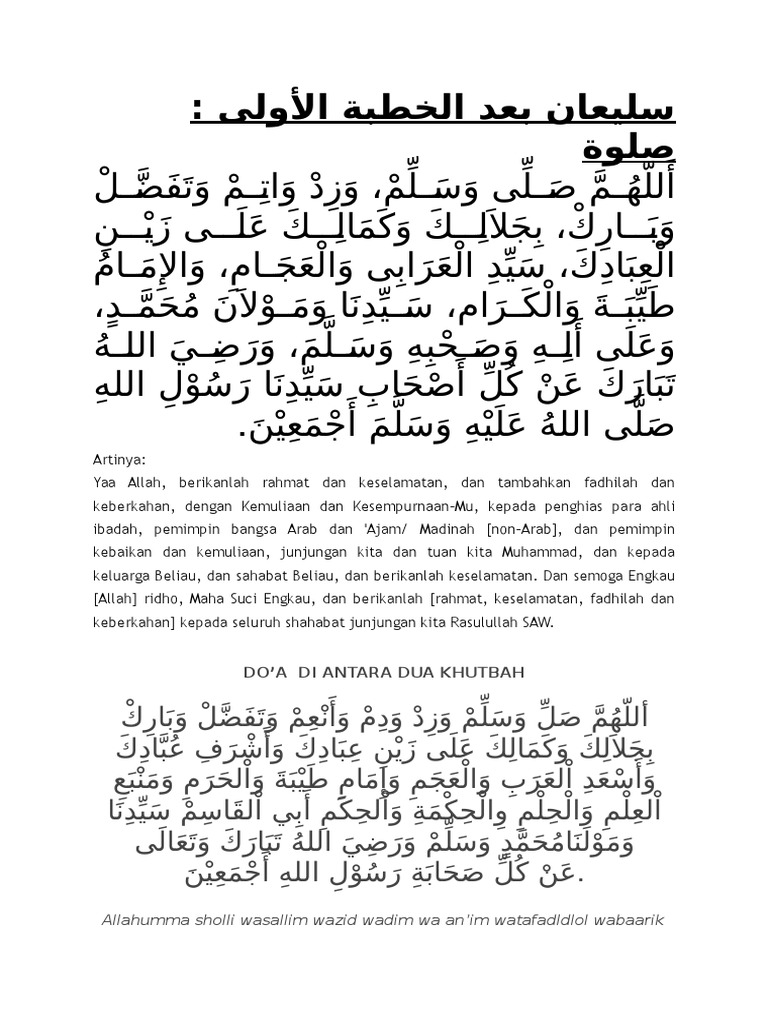 سليعان بعد الخطبة الأولى :
صلوة
أَللّهُمَّ صَلِّى وَسَلِّمْ، وَزِدْ وَاتِمْ وَتَفَضَّلْ
وَبَارِكْ، بِجَلاَلِكَ وَكَمَالِكَ عَلَى زَيْنِ
الْعِبَادِكَ، سَيِّدِ الْعَرَابِى وَالْعَجَامِ، وَالإِمَامُ
طَيِّبَةَ وَالْكَرَام، سَيِّدِنَا وَمَوْلاَنَ مُحَمَّدٍ،
وَعَلَى أَلِهِ وَصَحْبِهِ وَسَلَّمَ، وَرَضِيَ اللهُ
تَبَارَكَ عَنْ كُلِّ أَصْحَابِ سَيِّدِنَا رَسُوْلِ اللهِ
صَلَّى اللهُ عَلَيْهِ وَسَلَّمَ أَجْمَعِيْنَ.
Artinya:
Yaa Allah, berikanlah rahmat dan keselamatan, dan tambahkan fadhilah dan
keberkahan, dengan Kemuliaan dan Kesempurnaan-Mu, kepada penghias para ahli
ibadah, pemimpin bangsa Arab dan 'Ajam/ Madinah [non-Arab], dan pemimpin
kebaikan dan kemuliaan, junjungan kita dan tuan kita Muhammad, dan kepada
keluarga Beliau, dan sahabat Beliau, dan berikanlah keselamatan. Dan semoga Engkau
[Allah] ridho, Maha Suci Engkau, dan berikanlah [rahmat, keselamatan, fadhilah dan
keberkahan] kepada seluruh shahabat junjungan kita Rasulullah SAW.
DO’A DI ANTARA DUA KHUTBAH
أللّهُمَّ صَلِّ وَسَلِّمْ وَزِدْ وَدِمْ وَأَنْعِمْ وَتَفَضَّلْ وَبَارِكْ
بِجَلاَلِكَ وَكَمَالِكَ عَلَى زَيْنِ عِبَادِكَ وَأَشْرَفِ عُبَّادِكَ
وَأَسْعَدِ اْلعَرَبِ وَالْعَجَمِ وَإِمَامِ طَيْبَةَ وَاْلحَرَمِ وَمَنْبَعِ
اْلعِلْمِ وَالْحِلْمِ وِالْحِكْمَةِ وَاْلحِكَمِ أَبِي اْلقَاسِمْ سَيِّدِنَا
وَمَوْلَنَامُحَمَّدٍ وَسَلِّمْ وَرَضِيَ اللهُ تَبَارَكَ وَتَعَالَى
عَنْ كُلِّ صَحَابَةِ رَسُوْلِ اللهِ أَجْمَعِيْنَ.
Allahumma sholli wasallim wazid wadim wa an'im watafadldlol wabaarik